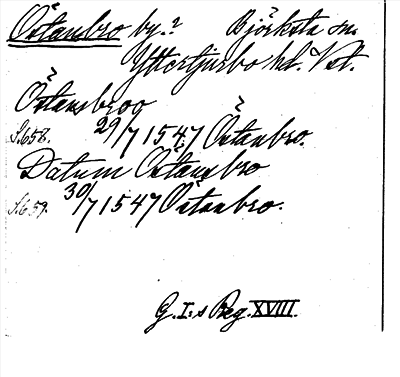 Östanbro by.? Björksta sn.
Yttertjurbo hd. Vstl.
Östansbroo
S. 658. 29/7 1547 Östanbro.
Datum Östansbro
S. 659. 30/7 1547 Östanbro.
G. I:s Reg. XVIII.